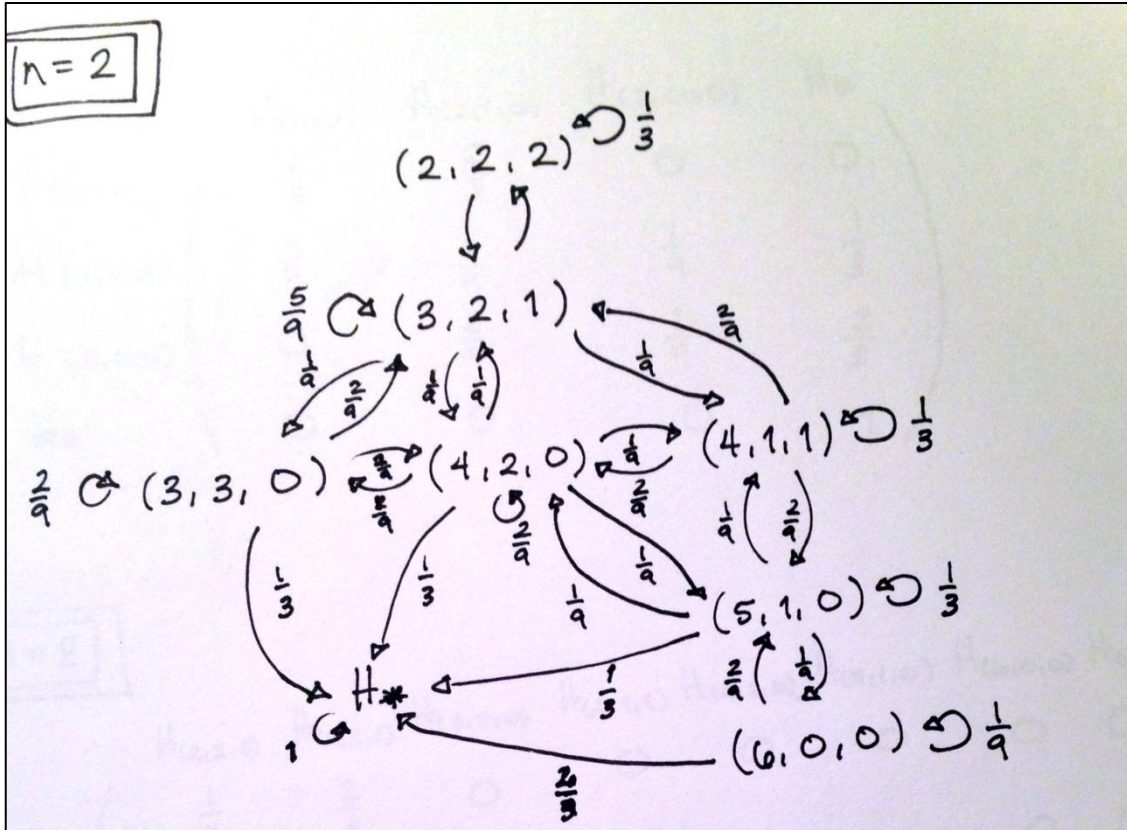 n = 2
(2, 2, 2) 1/3
5/9 (3, 2, 1)
1/9 2/9 1/9 1/9 1/9 2/9
2/9 (3, 3, 0) 2/9 (4, 2, 0) 1/9 2/9 (4, 1, 1) 1/3
2/9
1/3 1/3 1/9 1/9 1/9 2/9
(5, 1, 0) 1/3
H* 1/3 2/9 1/9
1
(6, 0, 0) 1/9